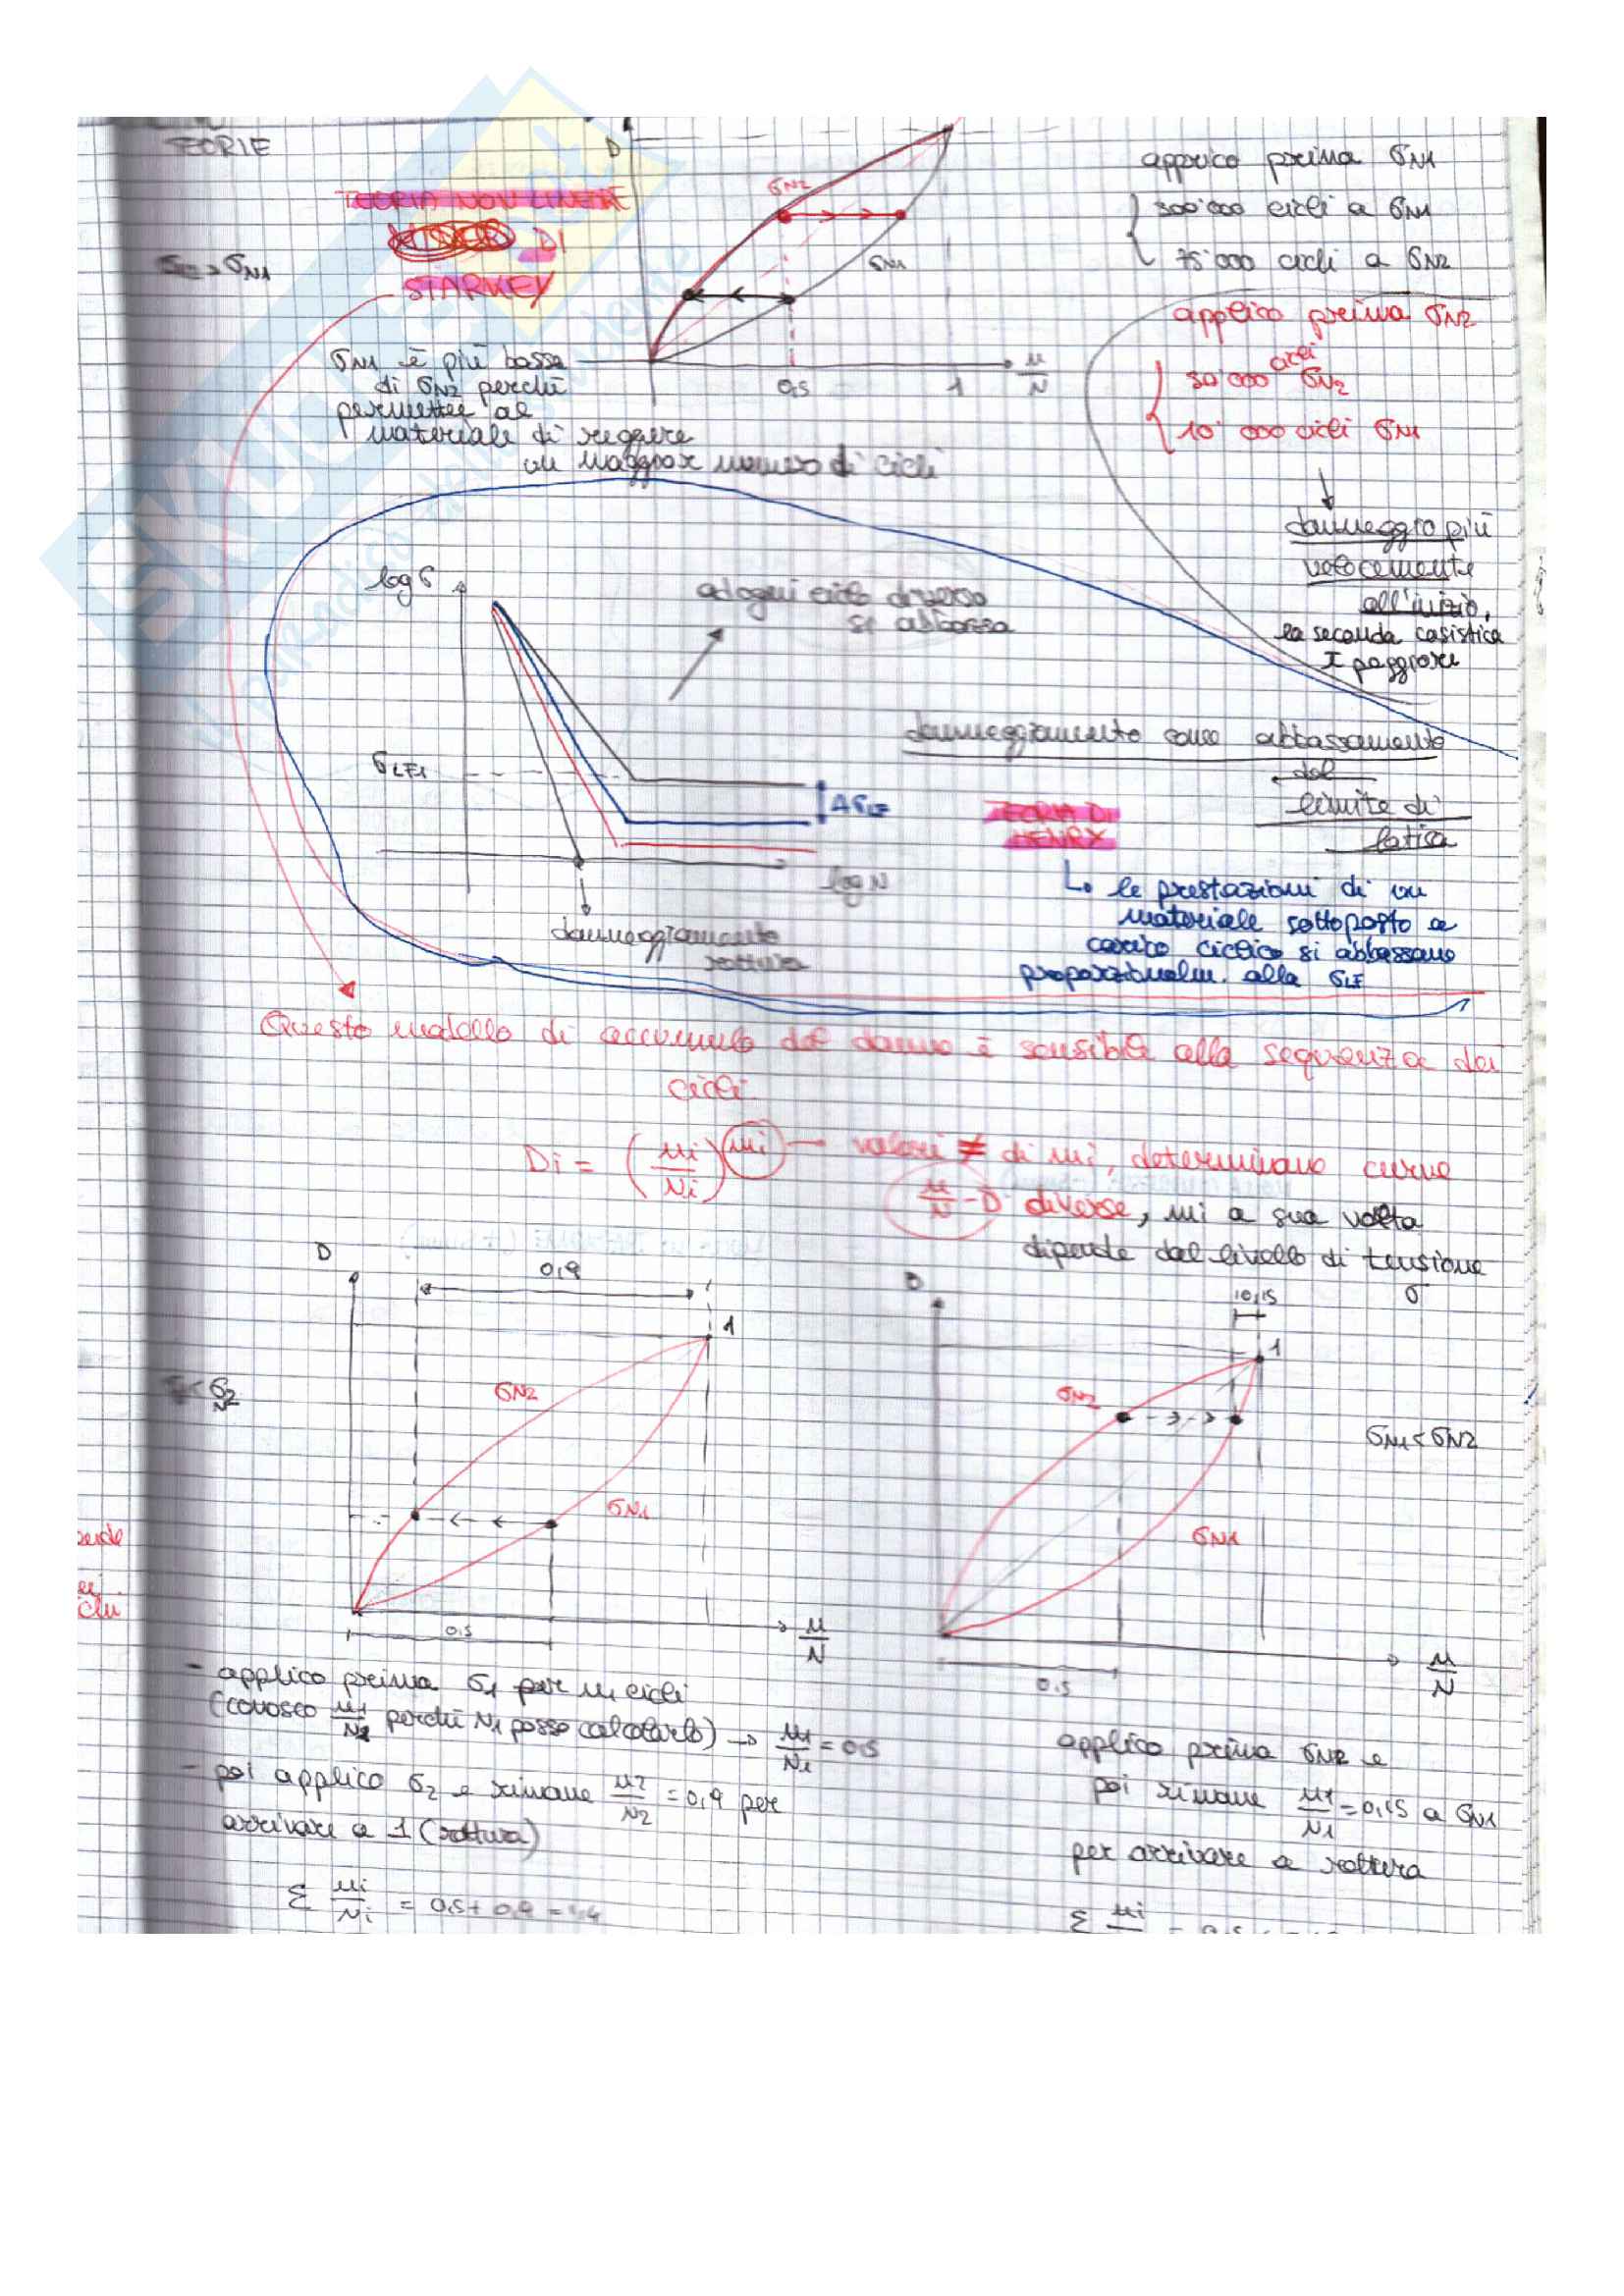 TEORIE
TEORIA NON LINEARE
DI
STARKEY
σN1
D
σN2
σN1
0,5
1
n/N
σN1 è più bassa
di σN2 perchè
permette al
materiale di reggere
un maggior numero di cicli
applico prima σN1
300'000 cicli a σN1
75'000 cicli a σN2
applico prima σN2
50'000 cicli σN2
10'000 cicli σN1
danneggio più
velocemente
all'inizio,
la seconda casistica
è peggiore
log σ
ad ogni ciclo diverso
si abbassa
σLF1
ΔσLF
log N
danneggiamento
rottura
danneggiamento come abbassamento
del
limite di
fatica
TEORIA DI
HENRY
le prestazioni di un
materiale sottoposto a
carico ciclico si abbassano
proporzionalm. alla σLF
Questo modello di accumulo del danno è sensibile alla sequenza dei
cicli.
Di = (ni/Ni)^mi → valori ≠ di mi, determinano curve
n/N - D diverse, mi a sua volta
dipende dal livello di tensione
σ
D
0,9
1
σN2
σN1
0,5
n/N
D
0,15
1
σN2
σN1<σN2
σN1
0,5
n/N
- applico prima σ1 per n1 cicli
(conosco n1/N1 perchè N1 posso calcolarlo) → n1/N1 = 0,5
- poi applico σ2 e rimane n2/N2 = 0,9 per
arrivare a 1 (rottura)
Σ ni/Ni = 0,5+0,9=1,4
applico prima σN2 e
poi rimane n1/N1 = 0,15 a σN1
per arrivare a rottura
Σ ni